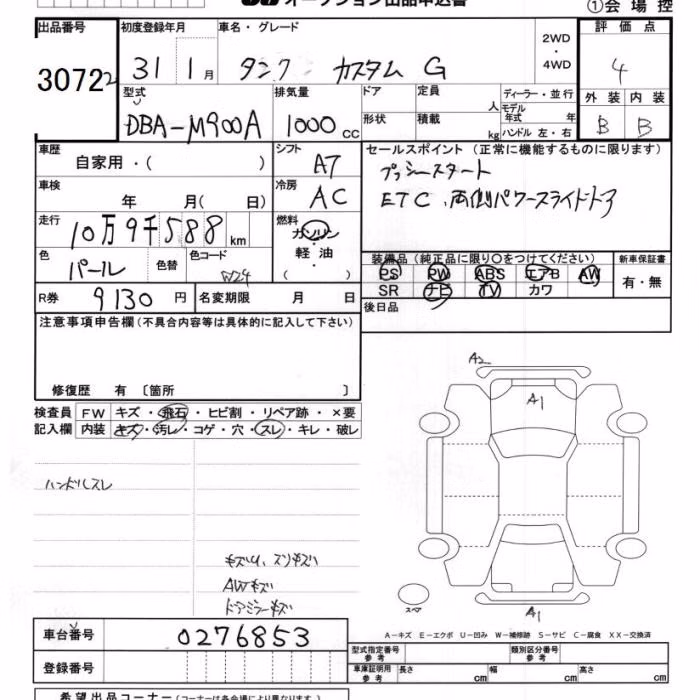 オークション出品申込書
①会場控
出品番号 30722
初度登録年月 31 1月
車名・グレード タンク カスタム G
2WD・4WD
評価点 4
外装 内装
B B
型式 DBA-M900A
排気量 1000cc
ドア 形状
定員 人
積載 kg
ディーラー・並行
モデル年式 年
ハンドル 左・右
車歴 自家用・( )
シフト A7
セールスポイント(正常に機能するものに限ります)
プッシースタート
ETC、両側パワースライドドア
車検 年 月( 日)
冷房 AC
走行 10万9千588km
燃料 ガソリン・軽油・( )
色 パール 色替
色コード W24
装備品(純正品に限り○をつけてください)
PS PW ABS エアB AW
SR ナビ TV カワ
新車保証書 有・無
R券 9130円
名変期限 月 日
後日品
注意事項申告欄(不具合内容等は具体的に記入して下さい)
修復歴 有 〔箇所 〕
検査員記入欄
FW キズ・飛石・ヒビ割・リペア跡・×要
内装 キズ・汚レ・コゲ・穴・スレ・キレ・破レ
ハンドルスレ
AWキズ
ドアミラーキズ
A2
A1
スペア
A1
A-キズ E-エクボ U-凹み W-補修跡 S-サビ C-腐食 XX-交換済
車台番号 0276853
登録番号
型式指定番号 参考
類別区分番号 参考
車庫証明用 参考 長さ cm 幅 cm 高さ cm
希望出品コーナー(コーナーは各会場により異なります。)